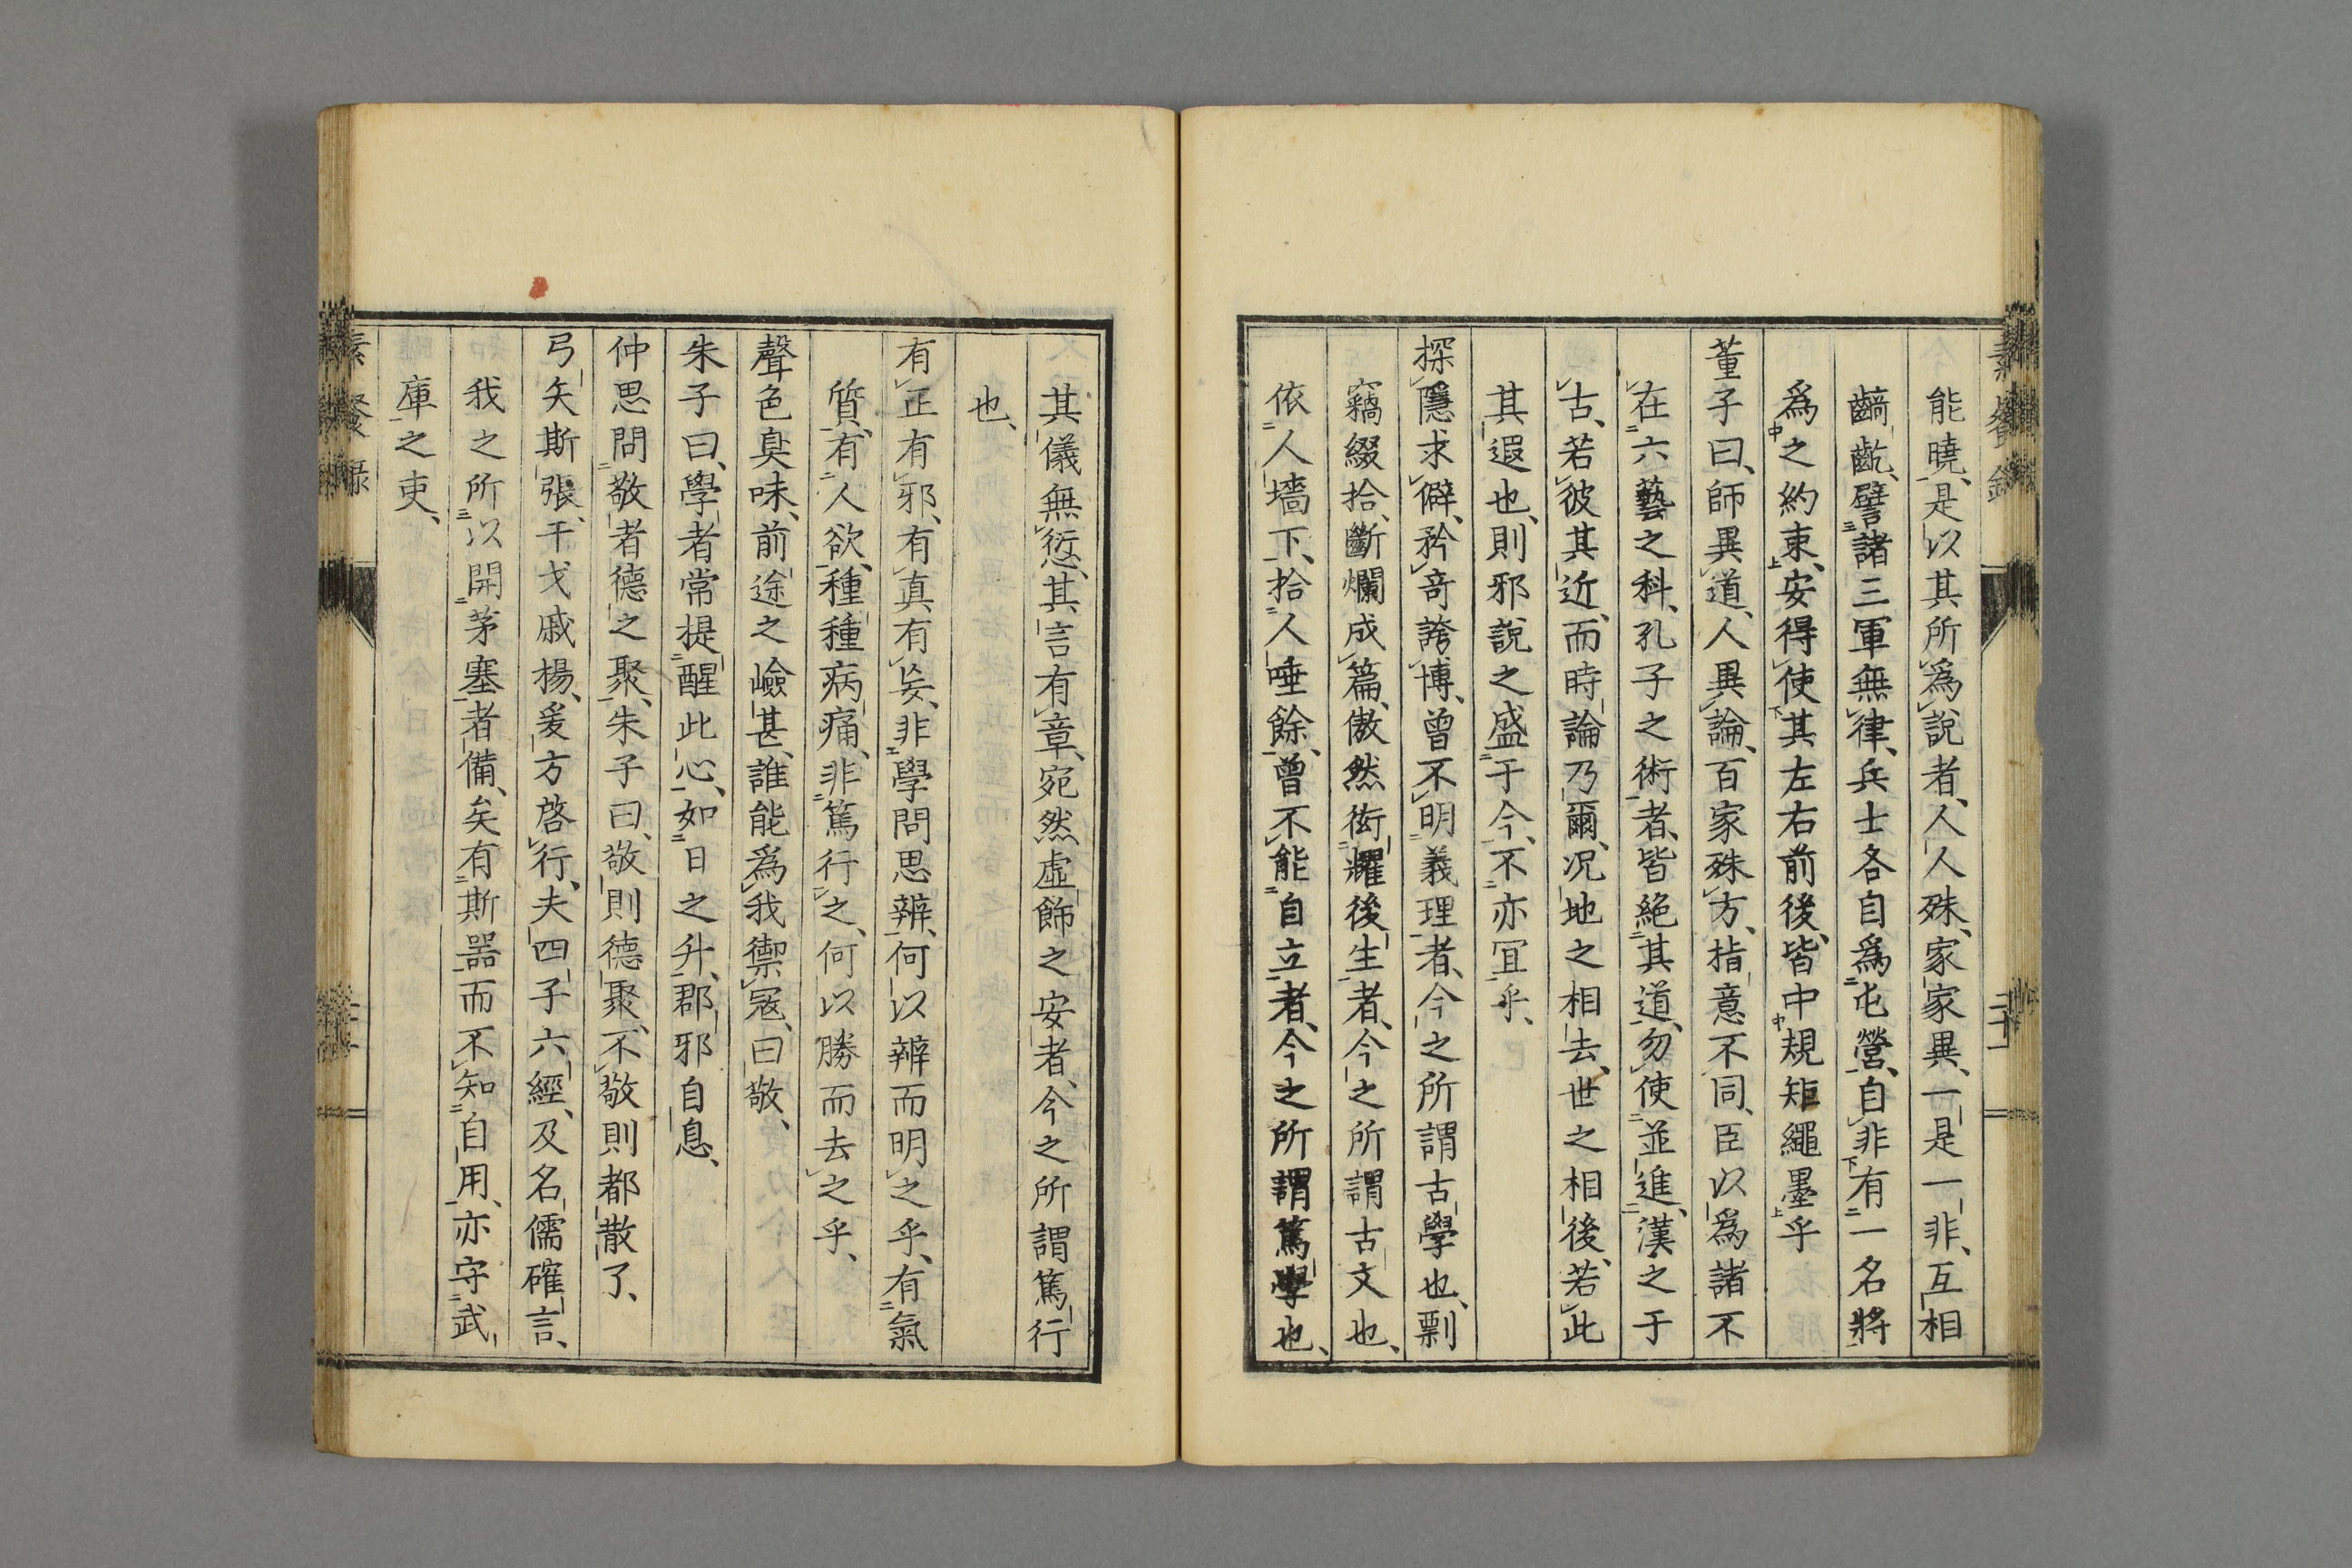 能曉、是以其所爲說者、人人殊、家家異、一是一非、互相
齮齕、譬諸三軍無律、兵士各自爲屯營、自非有一名將
爲之約束、安得使其左右前後、皆中規矩繩墨乎
董子曰、師異道、人異論、百家殊方、指意不同、臣以爲諸不
在六藝之科、孔子之術者、皆絕其道、勿使並進、漢之于
古、若彼其近、而時論乃爾、況地之相去、世之相後、若此
其遐也、則邪說之盛于今、不亦冝乎、
探隱求僻、矜奇誇博、曾不明義理者、今之所謂古學也、剽
竊綴拾、斷爛成篇、傲然衒耀後生者、今之所謂古文也、
依人墻下、拾人唾餘、曾不能自立者、今之所謂篤學也、
其儀無愆、其言有章、宛然虛飾之安者、今之所謂篤行
也、
有正有邪、有真有妄、非學問思辨、何以辨而明之乎、有氣
質、有人欲、種種病痛、非篤行之、何以勝而去之乎、
聲色臭味、前途之嶮甚、誰能爲我禦寇、曰敬、
朱子曰、學者常提醒此心、如日之升、郡邪自息、
仲思問敬者德之聚、朱子曰、敬則德聚、不敬則都散了、
弓矢斯張、干戈戚揚、爰方啓行、夫四子六經、及名儒確言、
我之所以開茅塞者備矣、有斯器而不知自用、亦守武
庫之吏、
二十一